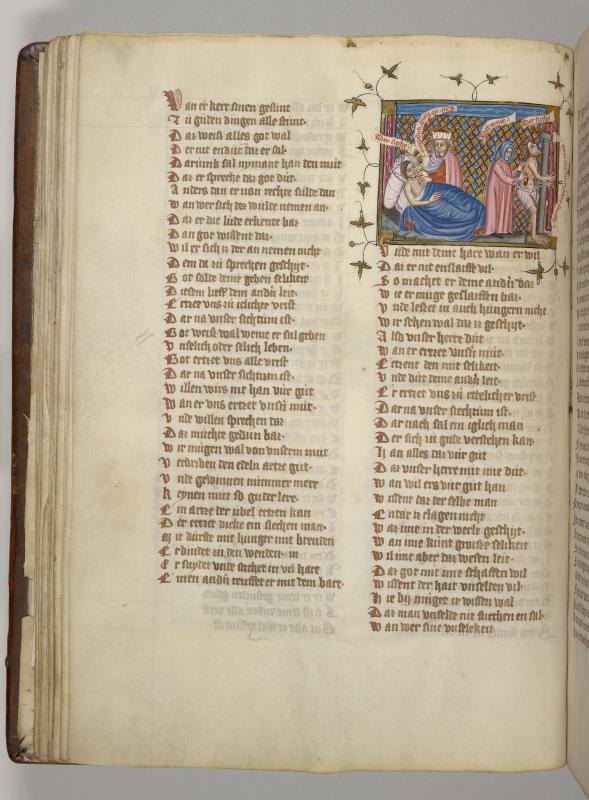 Wan er kert sinen gesunt
Zu guden dingen alle stunt.
Daz weist alles got wal
Der nit enduͦt daz er sal.
Darumb sal nymant han den muͦt
Daz er spreche daz got duͦt.
Anders dan er von rechte sulde dan
wan wer sich dez wulde nemen an.
Daz er die lude erkente baz
Dan got wissent daz.
wil er sich dez der an nemen nicht
Dem da zu sprechen geschiht.
Got sulde deme geben selikeit
Diesem lieff dem andern leit.
Ertzet vns zu iclicher vrist
Dar na vnser siechtum ist.
Got weist wal weme er sal geben
vnselich oder selich leben.
Got ertzet vns alle vrist
Dar na vnser siechtum ist.
willen wirs nit han vur guͦt
wan er vns ertzet vnsern muͦt.
vnde willen sprechen daz
Daz muchte gedun baz.
wir mugen wal von vnserm muͦt
verdriben den edeln artzte guͦt.
vnde gewinnen nimmer mere
keynen muͦt so guder lere.
Ein artzte der vbel ertzen kan
Der ertzet dicke ein siechen man.
mit durste mit hunger mit brenden
Er bindet zu den wenden in
Er snydet vnde stichet in vil hart
Einen andern reuffet er mit dem bart.
der sieche
der artzte
der sieche
vnde mit deme hare wan er wil
Daz er nit enslaiffe vil.
So machet er deme andern daz
wie er muge geslaiffen baz.
vnde lesset in auch hungern nicht
wir sehen wal daz iz geschiht.
Also vnser herre duͦt
wan er ertzet vnsern muͦt.
Er ertzent den mit selikeit.
vnde duͦt deme andern leit.
Er ertzet vns zu etzelicher vrist
Dar na vnser siechtum ist.
Dar nach sal ein iglich man
Der sich zu guͦde verstehen kan.
Han alles daz vur guͦt
Daz vnser herre mit ime duͦt.
wan wil ers vur guͦt han
wissent daz der selbe man
Endar iz clagen nicht
waz ime in der werlt geschiht.
wan ime kuͦnt groisse selikeit
wil ime aber daz wesen leit.
Daz got mit ime schaffen wil
wissent der hait vnselden vil.
Hie bij muget ir wissen wal
Daz man vnselde nit furchten en sal.
wan wer sine vnselekeit